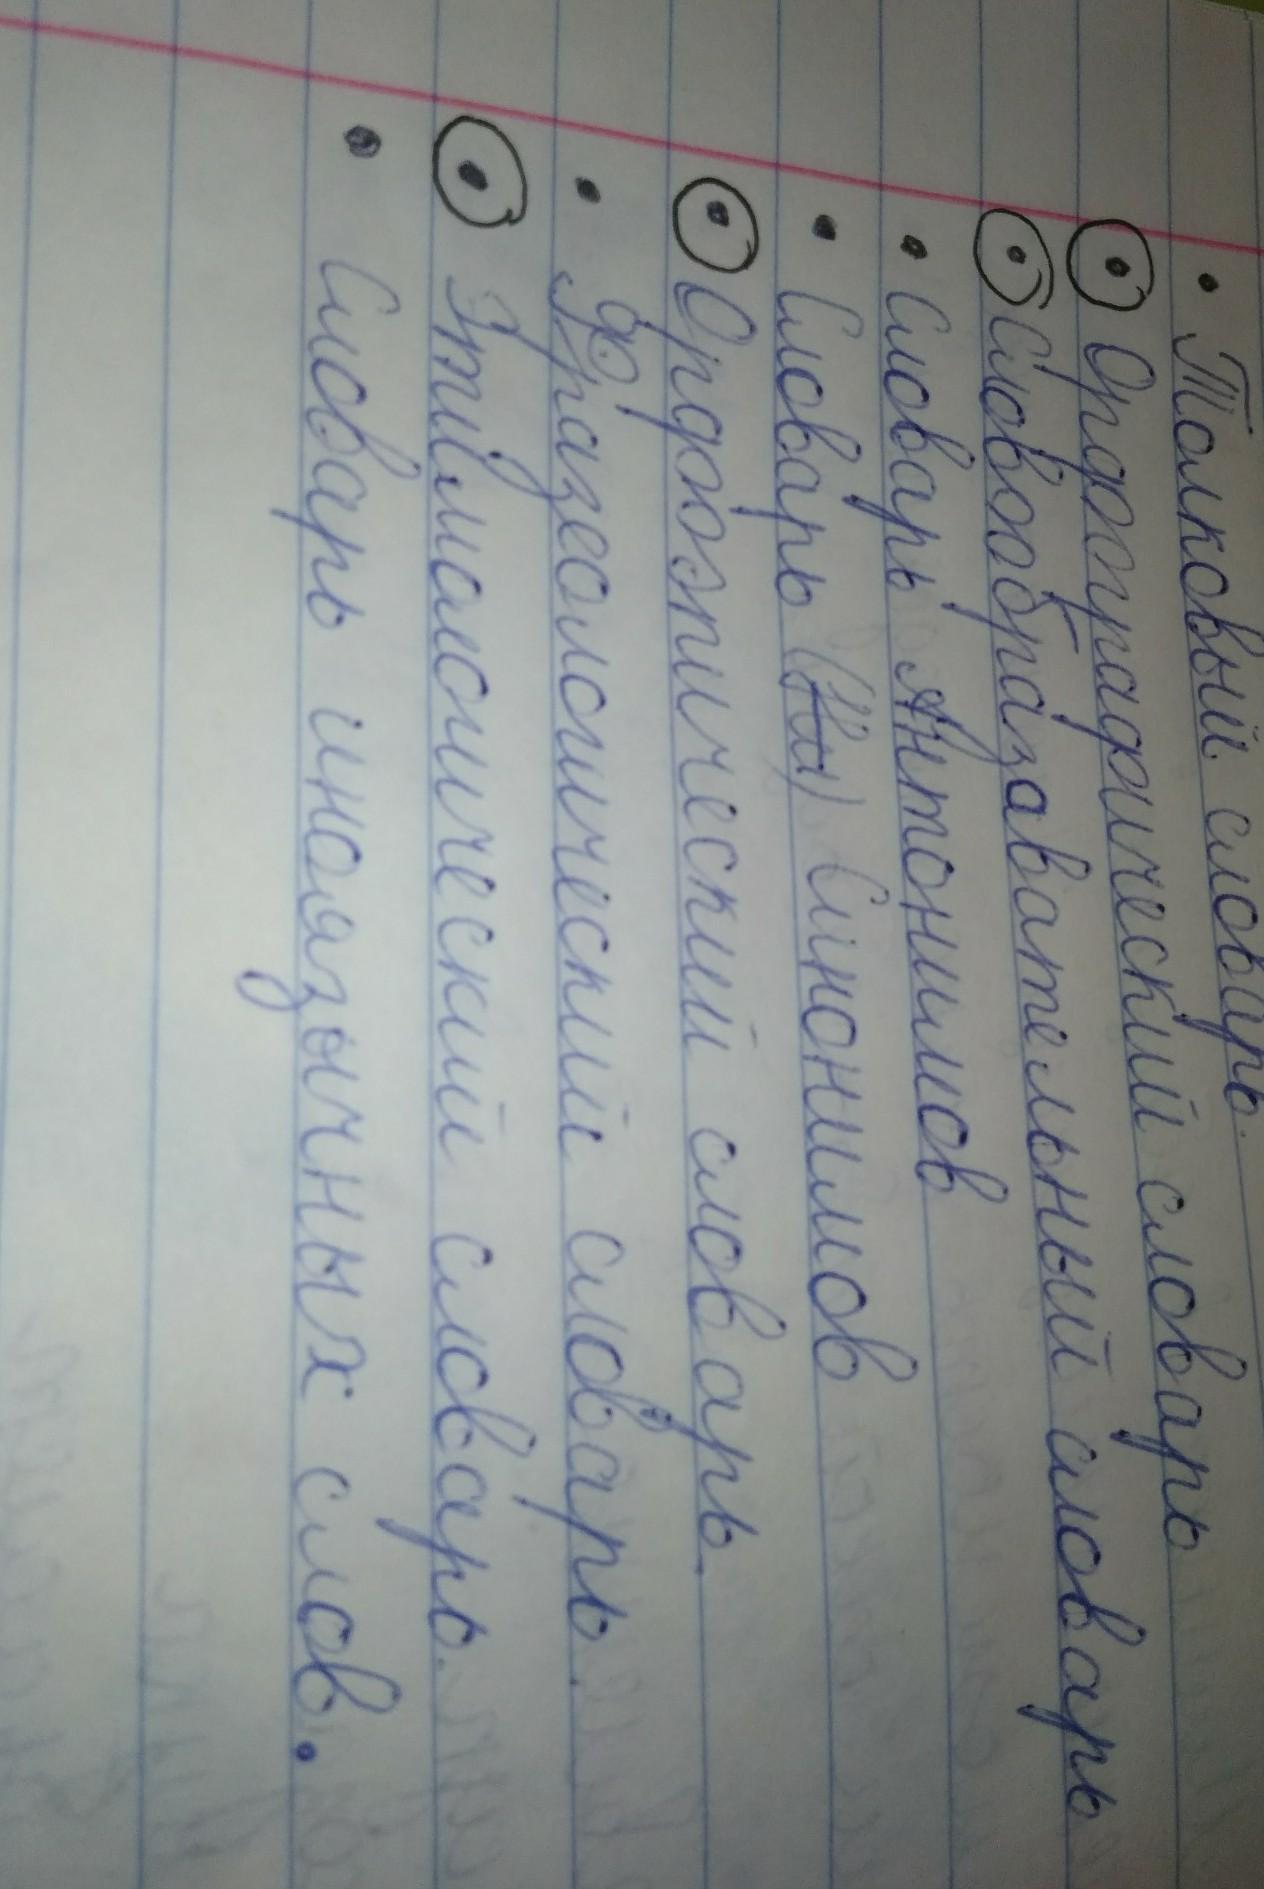 • Толковый словарь.
• Орфографический словарь
• Словообразавательный словарь
• Словарь Антонимов
• Словарь Синонимов
• Орфоэпический словарь.
• Фразеологический словарь.
• Этимологический словарь.
• Словарь иноязычных слов.